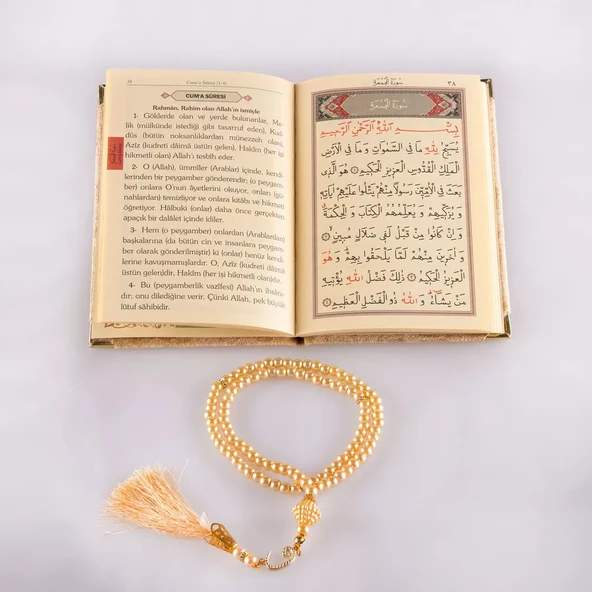 Cum'a Sûresi (1-4)
CUM'A SÛRESİ
Rahmân, Rahîm olan Allah'ın ismiyle
1- Göklerde olan ve yerde bulunanlar, Me-
lik (mülkünde istediği gibi tasarruf eden), Kud-
dûs (bütün noksanlıklardan münezzeh olan),
Azîz (kudreti dâimâ üstün gelen), Hakîm (her işi
hikmetli olan) Allah'ı tesbîh eder.
2- O (Allah), ümmîler (Arablar) içinde, kendi-
lerinden bir peygamber gönderendir; (o peygam-
ber) onlara O'nun âyetlerini okuyor, onları (gü-
nahlardan) temizliyor ve onlara kitâbı ve hikmeti
öğretiyor. Hâlbuki (onlar) daha önce gerçekten
apaçık bir dalâlet içinde idiler.
3- Hem (o peygamber) onlardan (Arablardan)
başkalarına (da bütün cin ve insanlara peygam-
ber olarak gönderilmiştir) ki (onlar) henüz kendi-
lerine kavuşmamışlardır. O, Azîz (kudreti dâimâ
üstün gelen)dir, Hakîm (her işi hikmetli olan)dır.
4- Bu (peygamberlik vazîfesi) Allah'ın ihsânı-
dır; onu dilediğine verir. Çünki Allah, pek büyük
lütuf sâhibidir.
سُورَةُ الْجُمُعَةِ
٣٨
سُورَةُ الْجُمُعَةِ
بِسْمِ اللهِ الرَّحْمٰنِ الرَّحِيمِ
يُسَبِّحُ لِلّٰهِ مَا فِي السَّمٰوَاتِ وَ مَا فِي الْاَرْضِ
الْمَلِكِ الْقُدُّوسِ الْعَزِيزِ الْحَكِيمِ ۝ هُوَ الَّذِي
بَعَثَ فِي الْاُمِّيّٖنَ رَسُولًا مِنْهُمْ يَتْلُوا عَلَيْهِمْ اٰيَاتِهِ
وَ يُزَكِّيهِمْ وَ يُعَلِّمُهُمُ الْكِتَابَ وَ الْحِكْمَةَ
وَ اِنْ كَانُوا مِنْ قَبْلُ لَفِي ضَلَالٍ مُبِينٍ ۝
وَ اٰخَرِينَ مِنْهُمْ لَمَّا يَلْحَقُوا بِهِمْ وَ هُوَ
الْعَزِيزُ الْحَكِيمُ ۝ ذٰلِكَ فَضْلُ اللهِ يُؤْتِيهِ
مَنْ يَشَاءُ وَ اللهُ ذُو الْفَضْلِ الْعَظِيمِ ۝